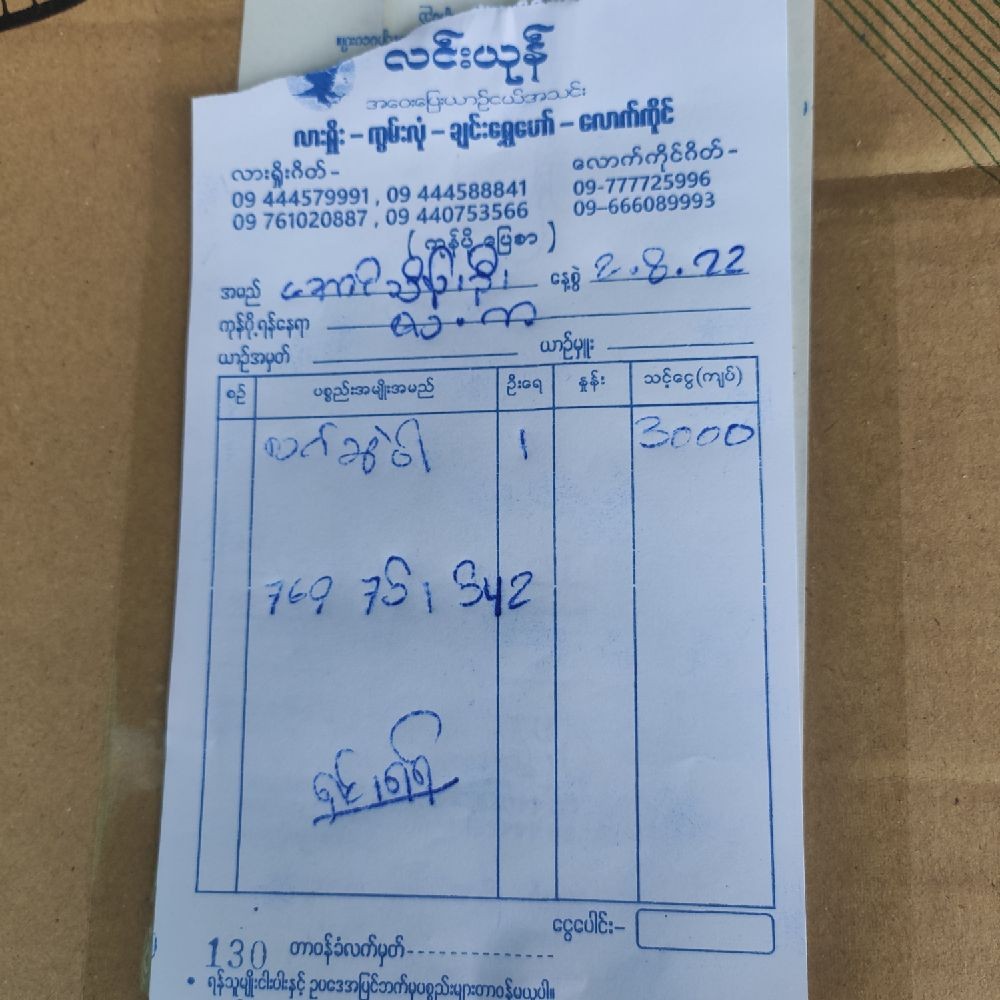 လင်းယုန်
အဝေးပြေးယာဉ်ငယ်အသင်း
လားရှိုး – ကွမ်းလုံ – ချင်းရွှေဟော် – လောက်ကိုင်
လားရှိုးဂိတ် –
09 444579991 , 09 444588841
09 761020887 , 09 440753566
လောက်ကိုင်ဂိတ် –
09-777725996
09–666089993
( ကုန်ပို့ပြေစာ )
အမည် အောင်သီဟဦး နေ့စွဲ 2.8.22
ကုန်ပို့ရန်နေရာ
ယာဉ်အမှတ် ယာဉ်မှူး
စဉ် ပစ္စည်းအမျိုးအမည် ဦးရေ နှုန်း သင့်ငွေ(ကျပ်)
လက်ဆွဲ 1 3000
769 751 542
ရှင်းရန်
ငွေပေါင်း–
130 တာဝန်ခံလက်မှတ်
• ရန်သူမျိုးငါးပါးနှင့် ဥပဒေအပြင်ဘက်မှပစ္စည်းများတာဝန်မယူပါ။